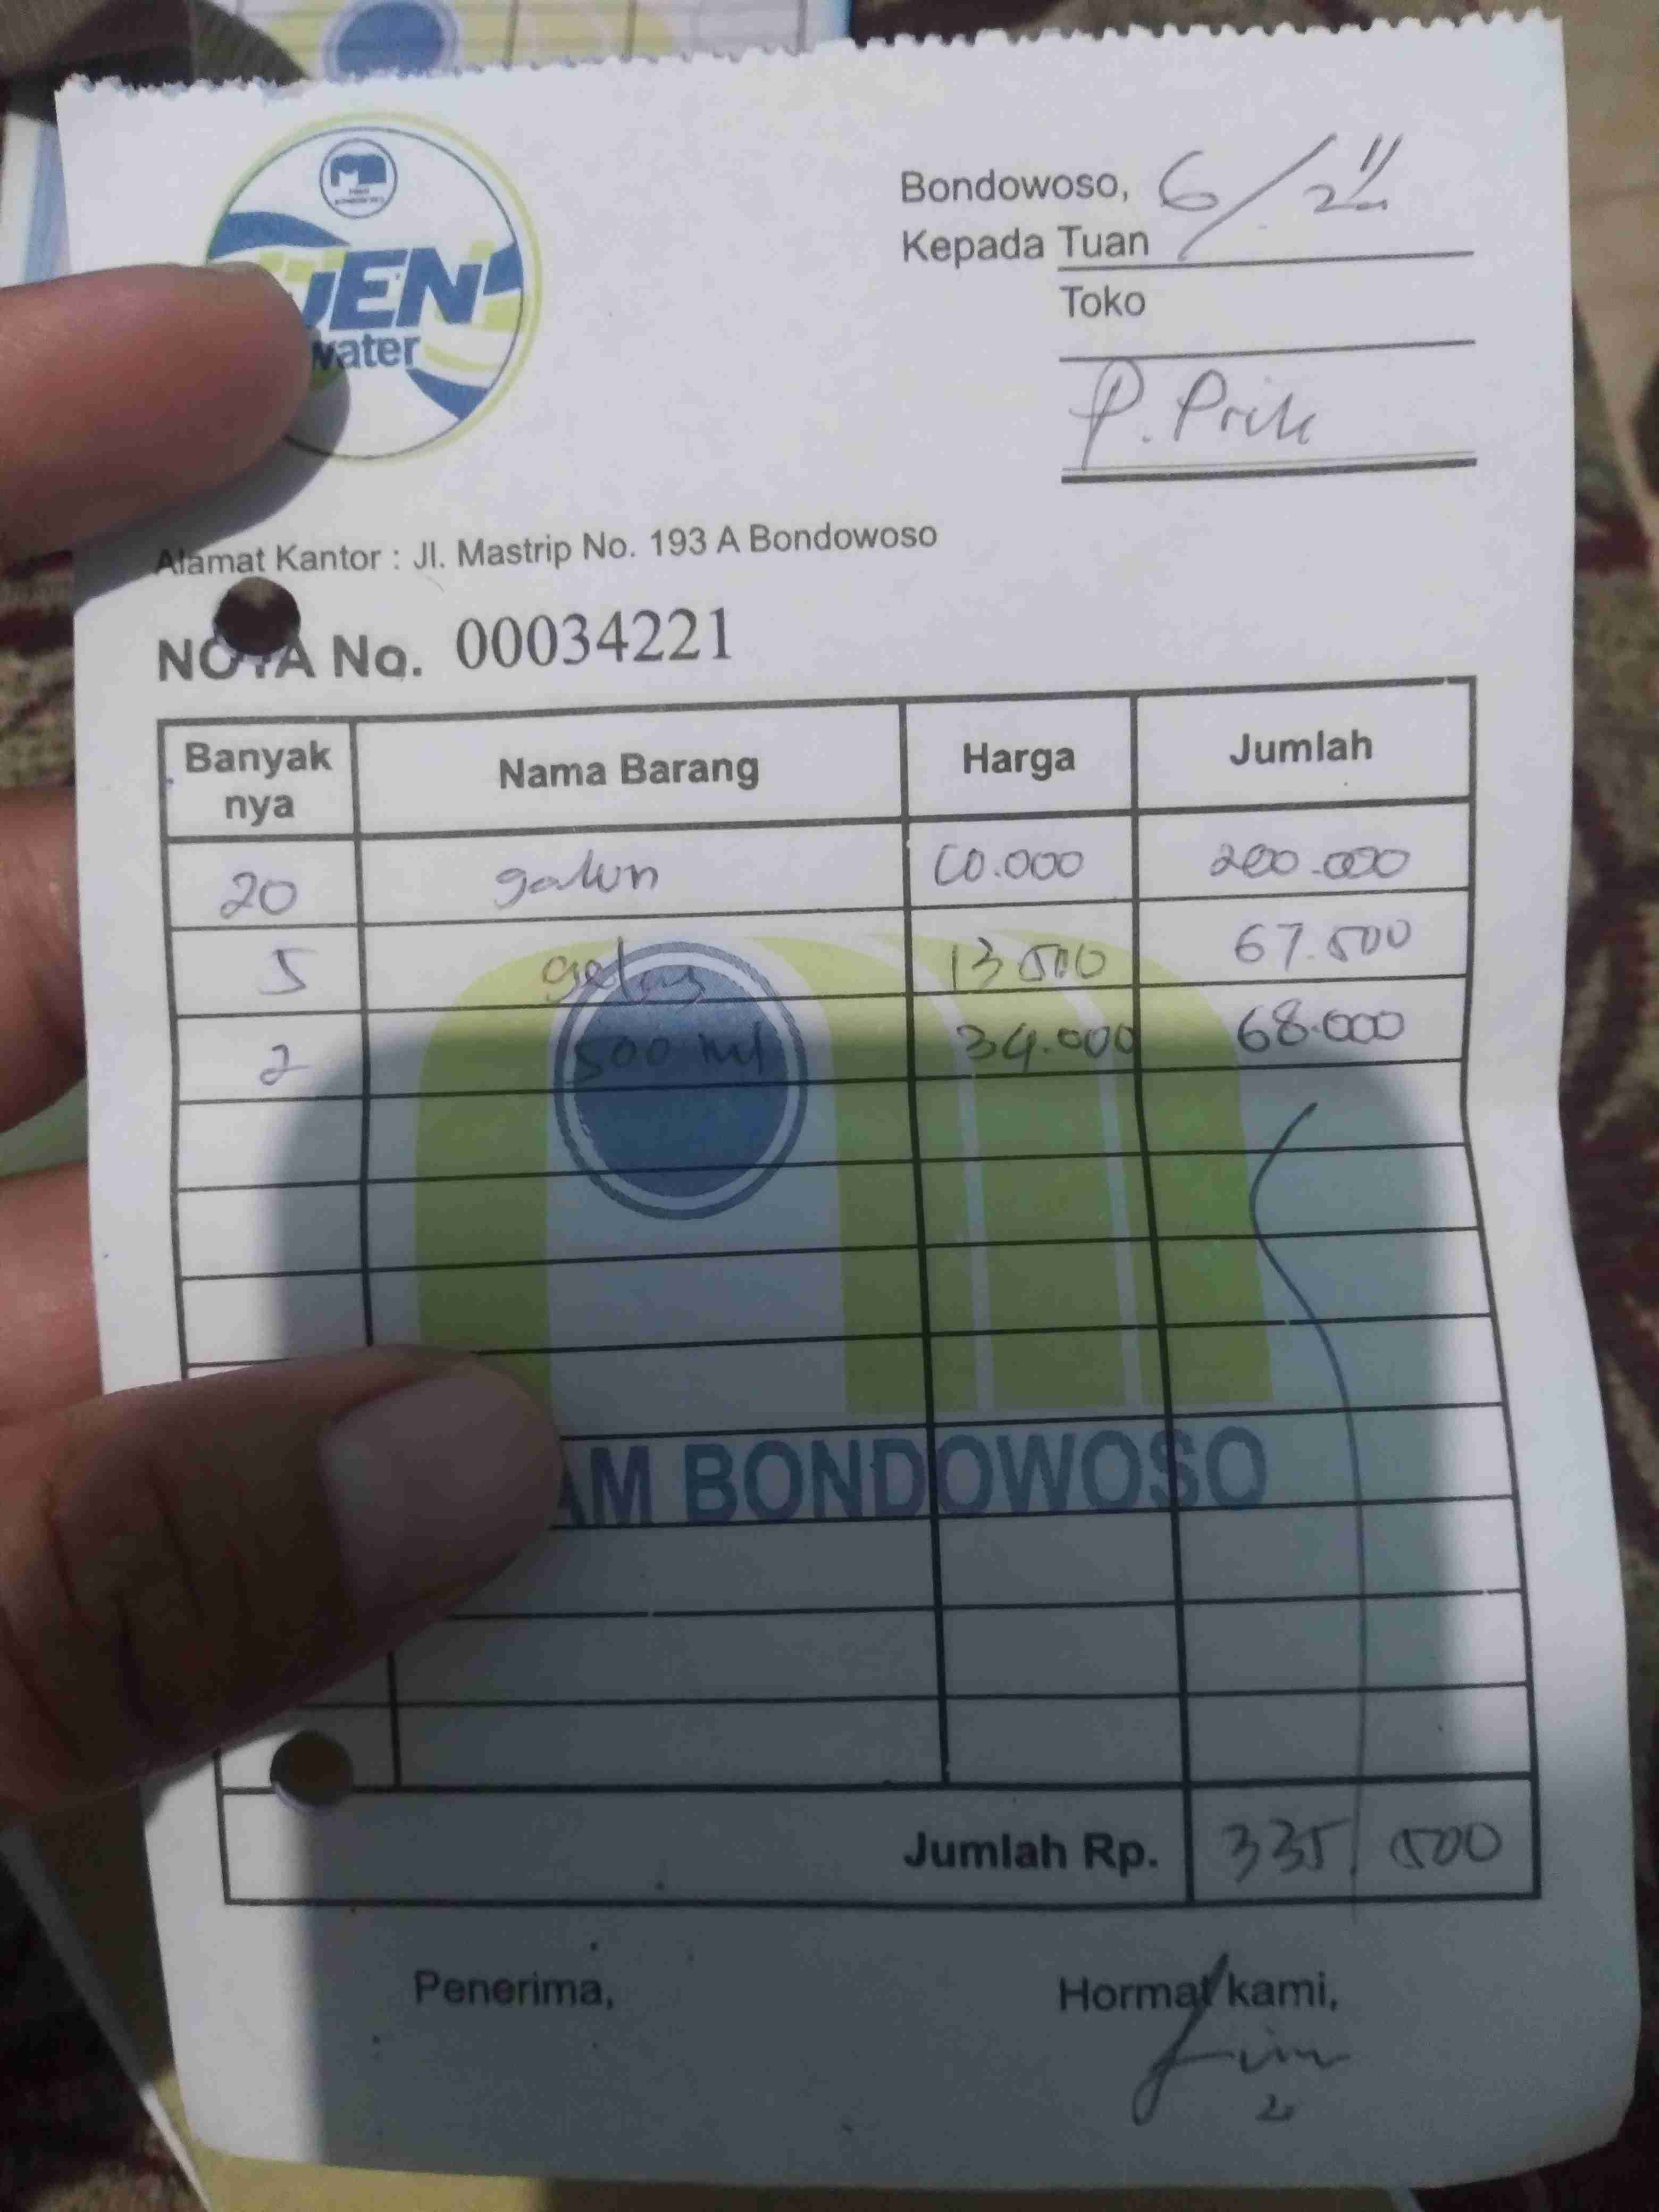 JEN
water
Bondowoso, 6/2
Kepada Tuan
Toko
P.
Alamat Kantor : Jl. Mastrip No. 193 A Bondowoso
NOTA No. 00034221
Banyak nya Nama Barang Harga Jumlah
20 galon 10.000 200.000
5 gelas 13.500 67.500
2 500 ml 34.000 68.000
AM BONDOWOSO
Jumlah Rp. 335.500
Penerima, Hormat kami,